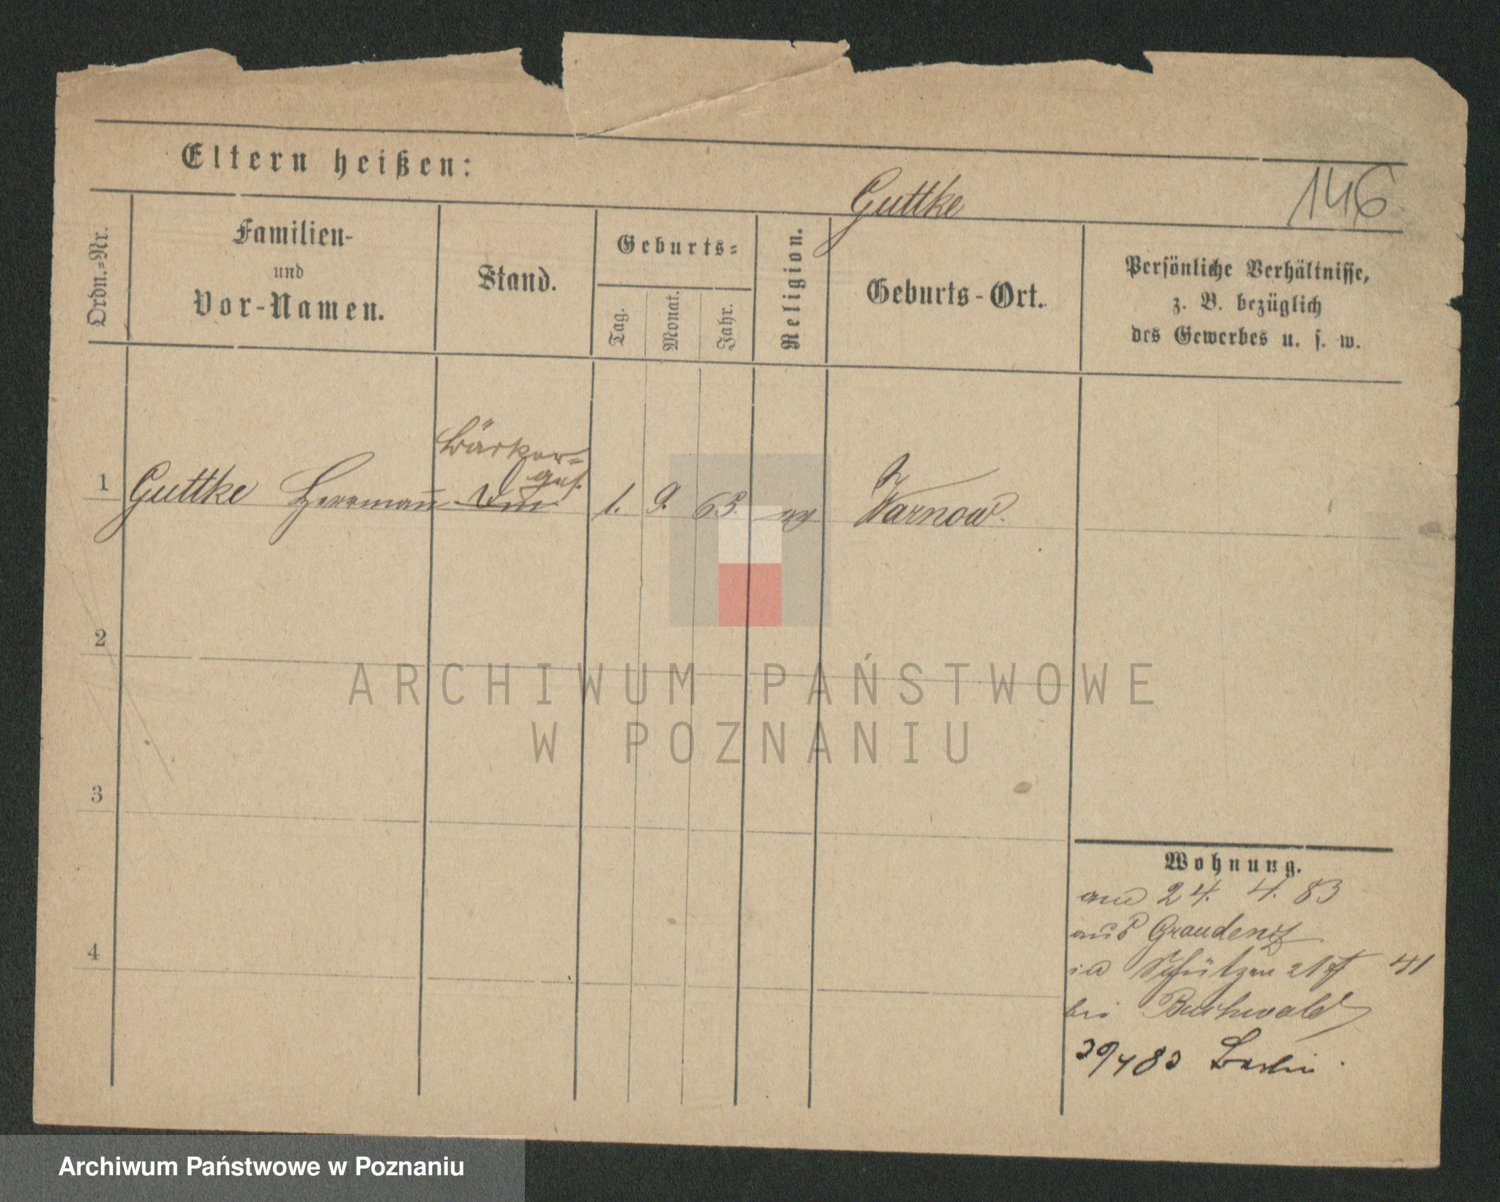 Eltern heißen:
Guttke
146
Ordn.-Nr.
Familien-
und
Vor-Namen.
Stand.
Geburts-
Tag.
Monat.
Jahr.
Religion.
Geburts-Ort.
Persönliche Verhältnisse,
z. B. bezüglich
des Gewerbes u. s. w.
Bäcker-
ges.
1 Guttke Herrmann 1. 9. 63. Warnow.
2
3
4
Wohnung.
am 24. 4. 83
aus Graudenz
in Schützen 41
bei Buchwald
30/4 83 Berlin.
ARCHIWUM PAŃSTWOWE
W POZNANIU
Archiwum Państwowe w Poznaniu